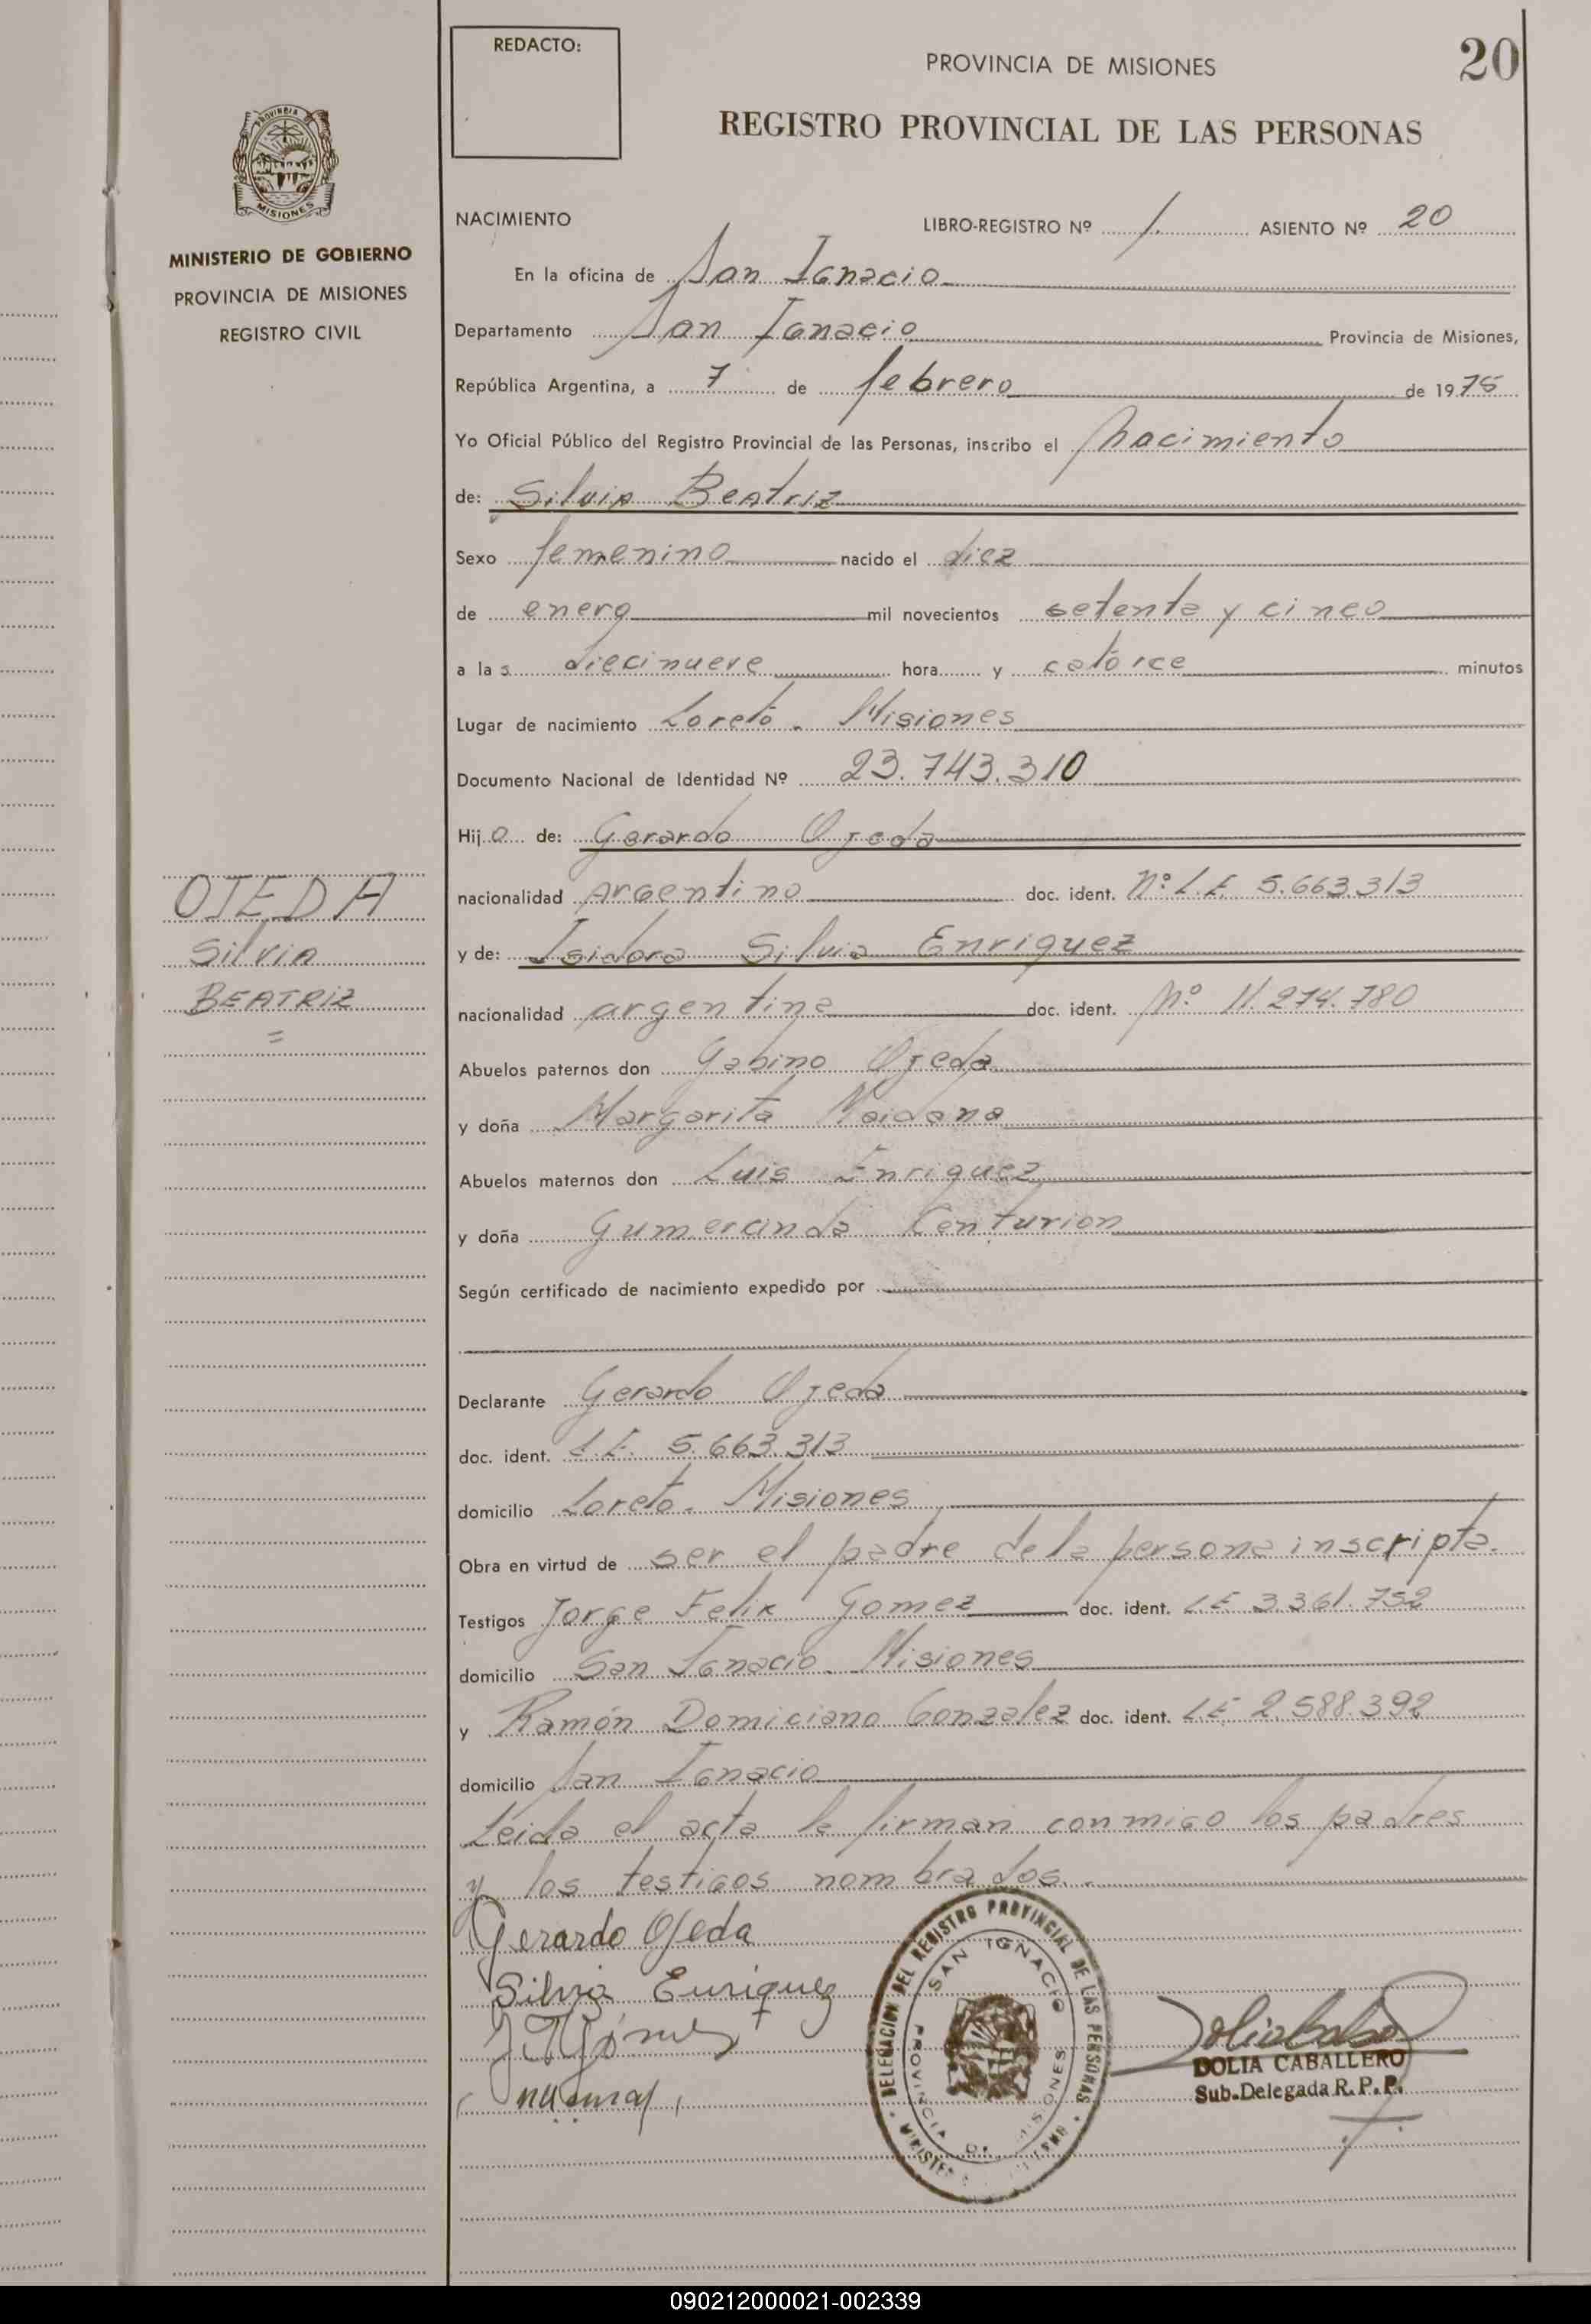 REDACTO:
PROVINCIA DE MISIONES
20
REGISTRO PROVINCIAL DE LAS PERSONAS
PROVINCIA DE
MISIONES
MINISTERIO DE GOBIERNO
PROVINCIA DE MISIONES
REGISTRO CIVIL
NACIMIENTO LIBRO-REGISTRO Nº 1. ASIENTO Nº 20
En la oficina de San Ignacio
Departamento San Ignacio Provincia de Misiones,
República Argentina, a 7 de febrero de 1975
Yo Oficial Público del Registro Provincial de las Personas, inscribo el nacimiento
de: Silvia Beatriz
Sexo femenino nacido el diez
de enero mil novecientos setenta y cinco
a las diecinueve hora y catorce minutos
Lugar de nacimiento Loreto - Misiones
Documento Nacional de Identidad Nº 23.743.310
Hija de: Gerardo Ojeda
nacionalidad Argentino doc. ident. Nº L.E. 5.663.313
y de: Isidora Silvia Enriquez
nacionalidad argentina doc. ident. Nº 11.274.780
Abuelos paternos don Gabino Ojeda
y doña Margarita Maidana
Abuelos maternos don Luis Enriquez
y doña Gumercinda Centurion
Según certificado de nacimiento expedido por
Declarante Gerardo Ojeda
doc. ident. L.E. 5.663.313
domicilio Loreto - Misiones
Obra en virtud de ser el padre de la persona inscripta.
Testigos Jorge Felix Gomez doc. ident. L.E. 3.361.752
domicilio San Ignacio - Misiones
y Ramón Domiciano Gonzalez doc. ident. L.E. 2.588.392
domicilio San Ignacio
Leida el acta la firman conmigo los padres
y los testigos nombrados.
OJEDA
Silvia
BEATRIZ
=
Gerardo Ojeda
Silvia Enriquez
DELEGACION DEL REGISTRO PROVINCIAL DE LAS PERSONAS
SAN IGNACIO
PROVINCIA DE MISIONES
DOLIA CABALLERO
Sub-Delegada R. P. P.
090212000021-002339